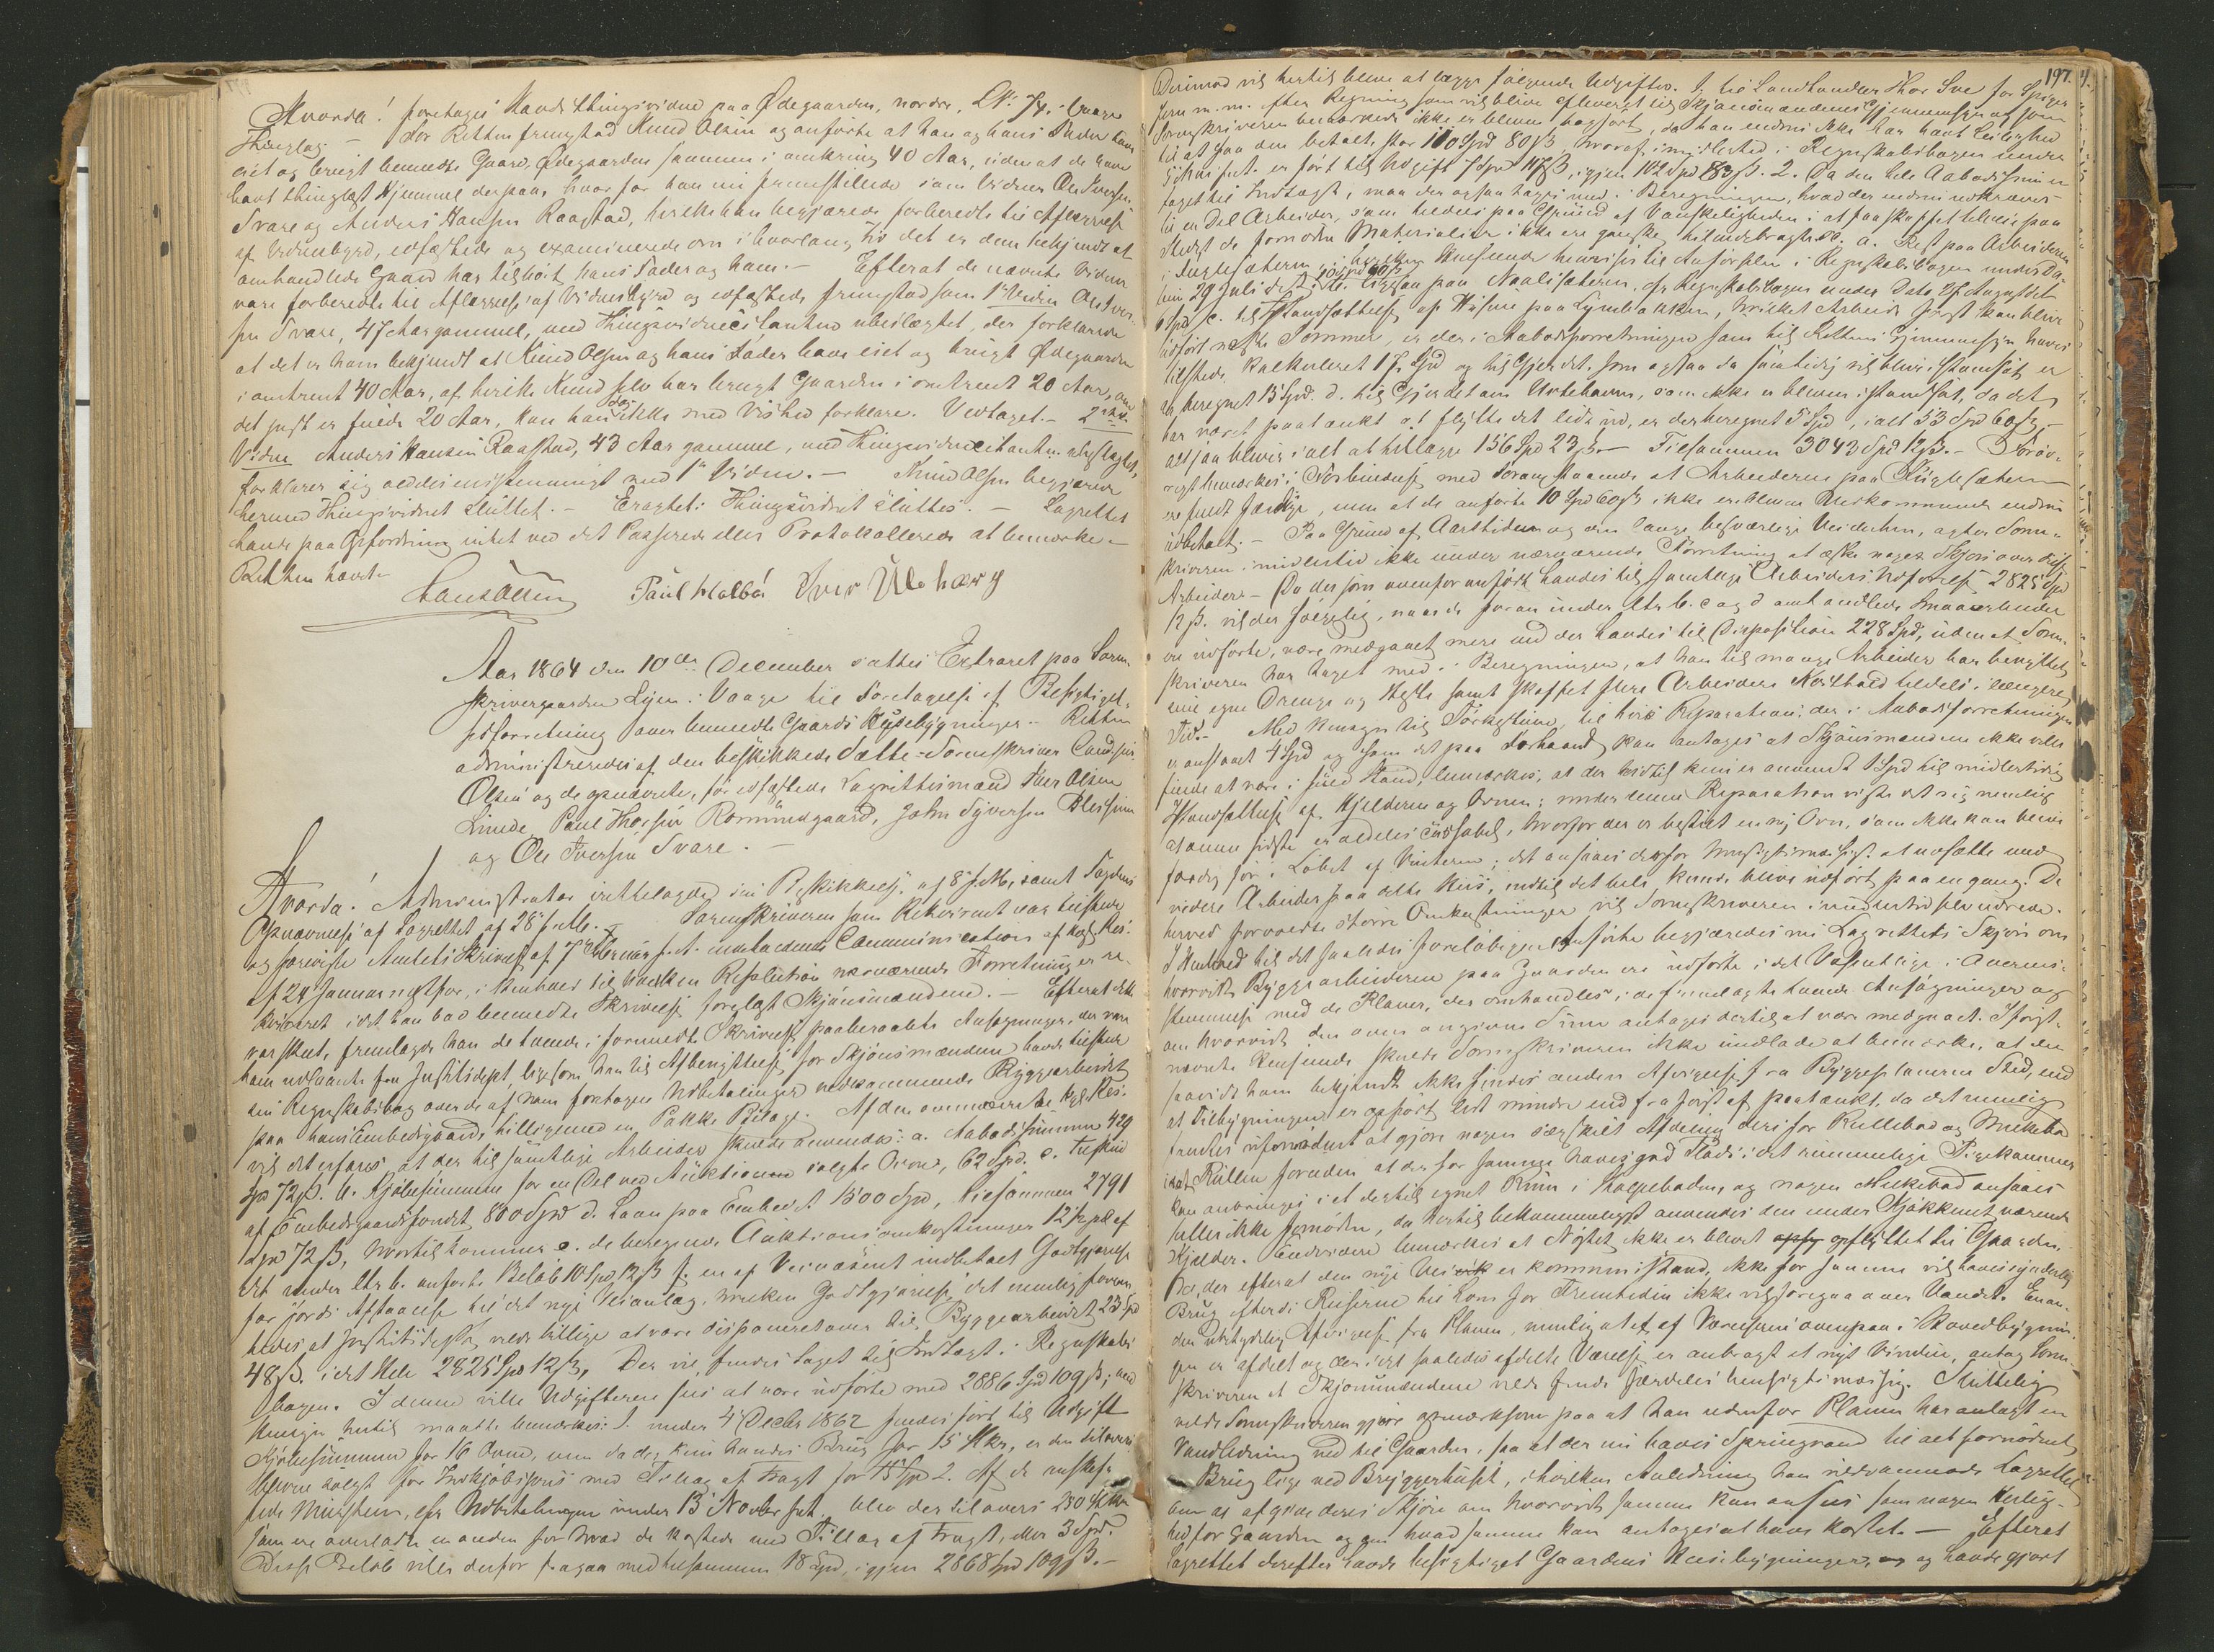 Hvorda! foretoges Hævdsthingsvidne paa Ødegaarden, nordre, LN: 74. Vaage
Thinglag. – For Retten fremstod Knud Olsen og anførte at han og hans Fader have
eiet og brugt bemeldte Gaard, Ødegaarden sammen i omkring 40 Aar, uden at de have
havt thinglæst Hjemmel derpaa, hvorfor han nu fremstillede som Vidner Ole Iversen
Svare og Anders Hansen Raastad, hvilke han begjærede forberedte til Aflæggelse
af Vidnesbyrd, edfæstede og examinerede om i hvorlang Tid det er dem bekjendt at
omhandlede Gaard har tilhørt hans Fader og ham. – Efterat de nævnte Vidner
vare forberedte til Aflæggelse af Vidnesbyrd og edfæstede fremstod som 1ste Vidne Ole Iver-
sen Svare, 47 Aar gammel, med Thingsvidnecitanten ubeslægtet, der forklarede
at det er ham bekjendt at Knud Olsen og hans Fader have eiet og brugt Ødegaarden
i omtrent 40 Aar, af hvilke Knud selv har brugt Gaarden i omtrent 20 Aar, om
det just er fulde 20 Aar, kan han dog ikke med Vished forklare. Vedtaget. – 2det
Vidne Anders Hansen Raastad, 43 Aar gammel, med Thingsvidnecitanten ubeslægtet,
forklarer sig aldeles overensstemmigt med 1ste Vidne. – Knud Olsen begjærede
hermed Thingsvidnet sluttet. – Eragtet: Thingsvidnet sluttes. – Lagrettet
havde paa Opfordring intet ved det Passerede eller Protokollerede at bemærke –
Retten hævet
Hans Olsen Paul Kolbø Iver Ulehærg
Aar 1864 den 10de December sattes Extraret paa Soren-
skrivergaarden Lyen i Vaage til Foretagelse af Besigtigel-
sesforretning over bemeldte Gaards Husebygninger – Retten
administreredes af den beskikkede Sætte-Sorenskriver Cand. jur.
Olsen og de opnævnte, før edfæstede Lagrettesmænd Iver Olsen
Linde, Paul Thorsen Romundgaard, John Syversen Blessum
og Ole Iversen Svare. –
Hvorda! Administrator irettelagde sin Beskikkelse af 8 f. M., samt Fogdens
Opnævnelse af Lagrettet af 28 f. M. – Sorenskriveren som Rekvirent var tilstede
og foreviste Amtets Skrivelse af 7 Februar f. A. indeholdende Communication af kgl. Res.
af 24 Januar næstfør, i Henhold til hvilken Resolution nærværende Forretning er re-
kvireret idet han bad bemeldte Skrivelse forelagt Skjønsmændene. – Efterat dette
var skeet, fremlagde han de tvende i formeldte Skrivelse paaberaabte Ansøgninger, der vare
ham udlaante fra Justitsdept. ligesom han til Afbenyttelse for Skjønsmændene havde tilstede
sin Regnskabsbog over de af ham foretagne Udbetalinger vedkommende Byggearbeidet
paa hans Embedsgaard, tilligemed en Pakke Bilage. Af den ovennævnte Kgl. Res.
vil det erfares at der til samtlige Arbeider skulde anvendes: a. Aabodssummen 429
Spd 72 ß. b. Kjøbesummen for en Del ved Auktionen solgte Ovne, 62 Spd. c. Tilskud
af Embedsgaardsfondet 800 Spd d. Laan paa Embedet 1500 Spd, tilsammen 2791
Spd 72 ß, hvortil kommer e. de beregnede Auktionsomkostninger 12½ pCt af
det under Litr b. anførte Beløb 10 Spd, 12 ß f. en af Veivæsenet indbetalt Godtgjørelse
for Jords Afstaaelse til det nye Veianlæg, hvilken Godtgjørelse, det nemlig forven-
tedes, at Justitsdeptet vilde tillige at være disponeret over til Byggearbeidet, 23 Spd
48 ß. i det Hele 2825 Spd 12 ß, Der vil findes taget til Indtægt i Regnskabs-
bogen. I denne ville Udgifterne sees at være udførte med 2886 Spd 109 ß; med
Hensyn hertil maatte bemærkes: 1. under 4 Decbr 1862 findes ført til Udgift
Kjøbesummen for 16 Ovne, men da der kun havdes Brug for 15 Stkr, er den tiloversblevne
solgt for Indkjøbspris med Tillæg af Fragt for 15 Spd 2. Af de anskaf-
fede Mursten, efr Udbetalingen under 13 Novbr s.A. blev der tilovers 250 Stkr
som ere overladte en anden for hvad de kostede med Tillæg af Fragt, eller 3 Spd.
Disse Beløb ville derfor fragaa med tilsammen 18 Spd, igjen 2868 Spd 109 ß. –
197.
Derimod vil hertil blive at lægge følgende Udgifter. 1. til Landhandler Thor Sve for Spiger
Jern m. m. efter Regning som vil blive efterlagt til Skjønsmændenes Gjennemsyn og som
Sorenskriveren bemærkede ikke er bleven bogført, da han endnu ikke har havt Leilighed
til at faa den betalt, stor 110 Spd 80 ß, hvoraf imidlertid i Regnskabsbogen under
er ført til Udgift 7 Spd 117 ß, igjen 102 Spd 83 ß. 2. Da den hele Aabodssum er
taget til Indtægt, maa der ogsaa tages med i Beregningen, hvad der endnu udkræves
til en Del Arbeider, som tildels paa Grund af Vanskeligheden i at faa skaffet tilveie paa
Stedet de fornødne Materialier ikke ere ganske tilendebragte. a. Rest paa Arbeiderne
i Sveglesæteren, i hvilken Henseende henvises til Anførselen i Regnskabsbogen under Da-
tum 29 Juli d.A. 10 Spd 60 ß b. ligesaa paa Naalisæteren, efr Regnskabsbogen under Dato 27 August d.A.
6 Spd c. til Istandsættelse af Husene paa Lyenbakken, hvilket Arbeide først kan blive
udført næste Sommer, er der i Aabodsforretningen som til Rettens Gjennemsyn haves
tilstede, kalkuleret 17 Spd og til Gjerdet, som ogsaa da samtidig vil blive istandsat, er
beregnet 15 Spd. d. til Gjerdet om Urtehaven, som ikke er bleven istandsat, da det
har været paatænkt at flytte det lidt ud, er der beregnet 5 Spd, ialt 53 Spd 60 ß,
altsaa bliver ialt at tillægge 156 Spd 23 ß. – Tilsammen 3043 Spd 12 ß. – Forøv-
rigt bemærkes i Forbindelse med Foranstaaende at Arbeiderne paa Sveglesæteren
ere fuldt færdige, men at de anførte 10 Spd 60 ß ikke ere blevne Vedkommende endnu
udbetalt. – Paa Grund af Aarstiden og den lange besværlige Veidistance, agter Soren-
skriveren imidlertid ikke under nærværende Forretning at æske noget Skjøn over disse
Arbeider – Da der som ovenfor anført havdes til samtlige Arbeiders Udførelse 2825 Spd
12 ß. vil der følgelig, naar de foran under Litr b. c og d omhandlede Smaaarbeider
ere udførte, være medgaaet mere end der havdes til Disposition 228 Spd, uden at Soren-
skriveren har taget med i Beregningen, at han til mange Arbeider har benyttet
sine egne Drenge og Heste samt skaffet flere Arbeidere Kosthold tildels i længere
Tid. – Med Hensyn til Tørkestuen, til hvis Reparation der i Aabodsforretningen
er ansat 4 Spd og som det paa Forhaand kan antages at Skjønsmændene ikke ville
finde at være i fuld Stand, bemærkes, at der hidtil kun er anvendt 1 Spd til midlertidig
Istandsættelse af Kjelderen og Ovnen; under denne Reparation viste det sig nemlig
at denne sidste er aldeles ubrugbar, hvorfor der er bestilt en ny Ovn, som ikke kan blive
færdig før i Løbet af Vinteren; det ansaaes derfor hensigtsmæssigst at udsætte med
videre Arbeider paa dette Huus, indtil det hele kunde blive udført paa engang. De
herved forvoldte større Omkostninger vil Sorenskriveren imidlertid selv udrede.
I Henhold til det saaledes foreløbigen Anførte begjæredes nu Lagrettets Skjøn om
hvorvidt Byggearbeiderne paa Gaarden ere udførte i det Væsentlige i Overens-
stemmelse med de Planer, der omhandles i de fremlagte tvende Ansøgninger og
om hvorvidt den oven angivne Sum antages dertil at være medgaaet. I først-
nævnte Henseende skulde Sorenskriveren ikke undlade at bemærke, at der
saavidt ham bekjendt ikke findes anden Afvigelse fra Byggeplanerne Sted, end
at Tilbygningen er opført lidt mindre end fra først af paatænkt, da det nemlig
fandtes ufornødent at gjøre nogen særskilt Afdeling deri for Rullebod og Melkebod
idet Rullen foruden at der for samme haves god Plads i det rummelige Pigekammer
kan anbringes i et dertil egnet Rum i Kolpeboden, og nogen Melkebod ansaaes
heller ikke fornøden, da hertil bekvemmeligst anvendes den under Kjøkkenet værende
Kjelder. Endvidere bemærkes at Nøstet ikke er blevet opflyttet til Gaarden,
der efterat den nye Vei er kommen istand, ikke for samme vil haves synderlig
Brug efterdi Reiserne til Lom for Fremtiden ikke vil foregaa over Vandet. En an-
den ubetydelig Afvigelse fra Planen, nemlig at et af Værelserne ovenpaa i Hovedbygnin-
gen er afdelt og der i det saaledes afdelte Værelse er anbragt et nyt Vindue, antog Soren-
skriveren at Skjønsmændene vilde finde særdeles hensigtsmæssig. Sluttelig
vilde Sorenskriveren gjøre opmærksom paa at han udenfor Planen har anlagt en
Vandledning ned til Gaarden, saa at der nu haves Springvand til alt fornødent
Brug lige ved Bryggerhuset, i hvilken Anledning han vilde anmode Lagrettet
om at afgive deres Skjøn om hvorvidt samme kan ansees som nogen Herlig-
hed for Gaarden og om hvad samme kan antages at have kostet. – Efterat
Lagrettet derefter havde besigtiget Gaardens Husebygninger, og havde gjort